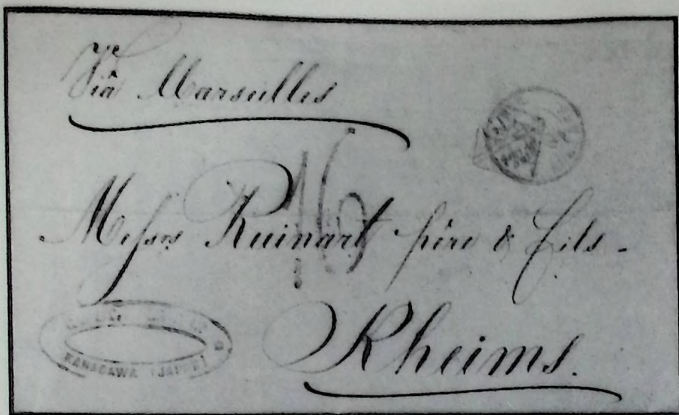 Viâ Marseilles
16
Messrs Ruinart père & fils -
Rheims.
KANAGAWA (JAPAN)